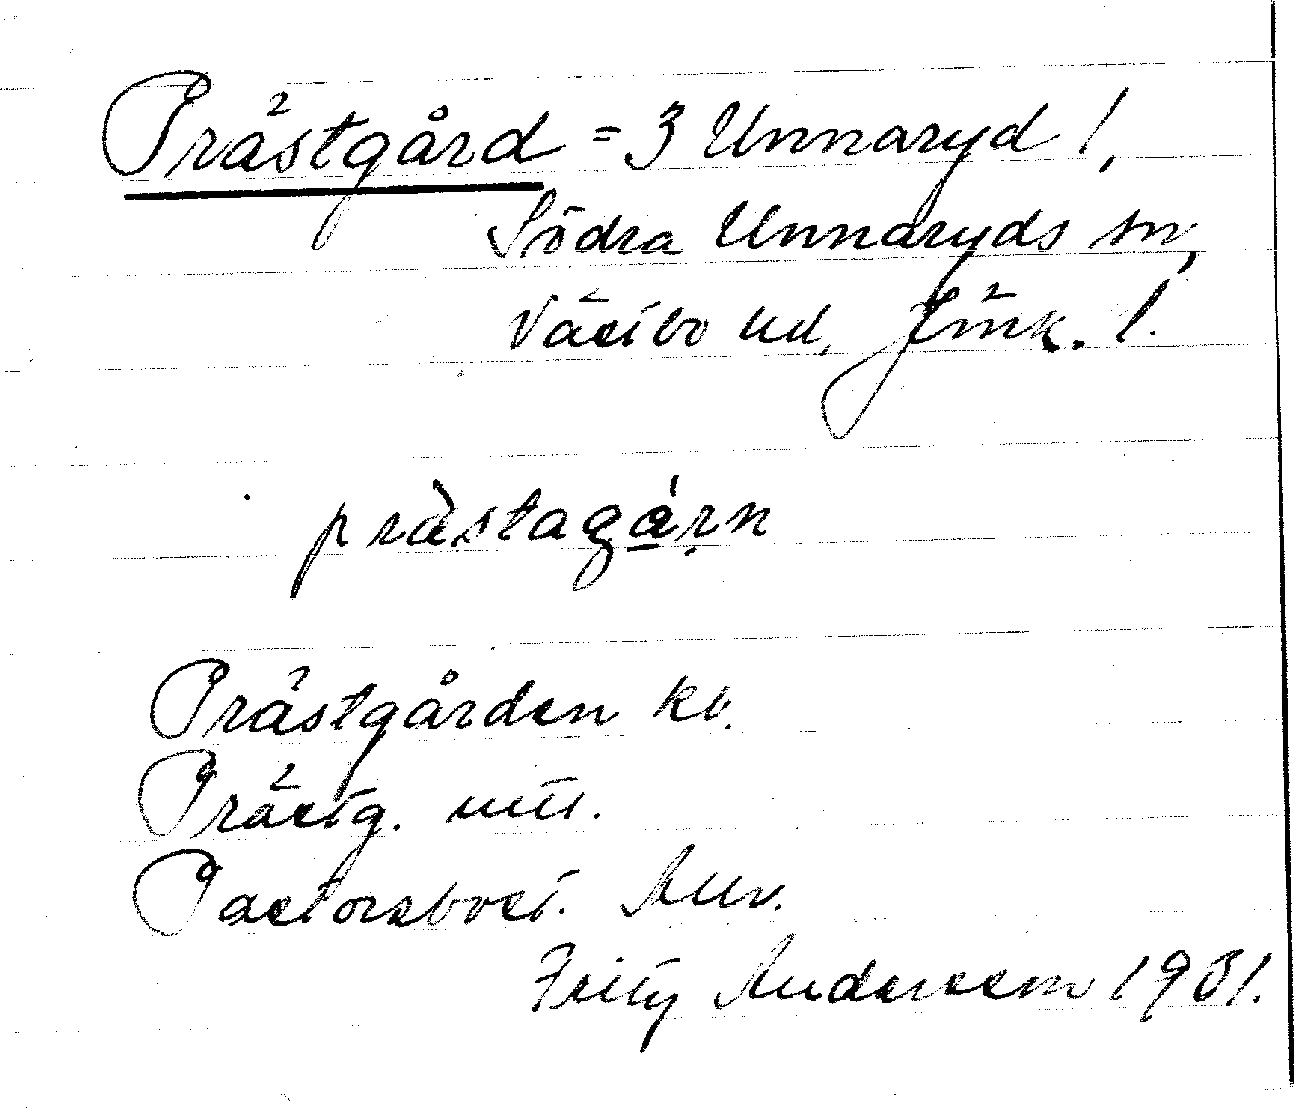 Prästgård = 3 Unnaryd 1,
Södra Unnaryds sn,
Västbo hd, Jönk. l.
pràstagárn
Prästgården kv.
Prästg. utt.
Pastorsbost. Anv.
Fritz Andersson 1931.